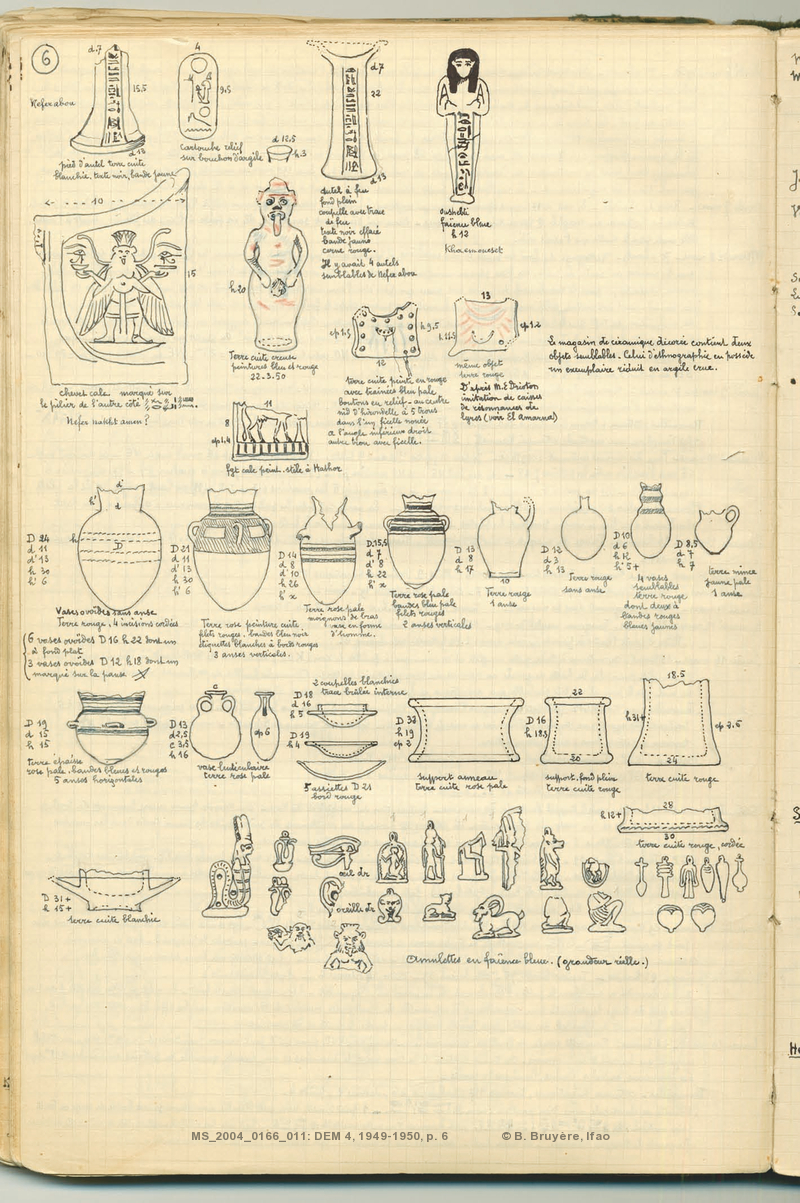 6
d. 7
15,5
d 13
Nefer abou
pied d'autel terre cuite
blanchie. texte noir, bande jaune
4
9,5
Cartouche relief
sur bouchon d'argile
d 12,5
h 3
d 7
22
d 13
autel à feu
fond plein
coupelle avec trace
de feu
texte noir effacé
bande jaune
cerné rouge.
Il y avait 4 autels
semblables de Nefer abou
oushebti
faïence bleue
h 12
Khaemouaset
10
15
chevet calc. marqué sur
le pilier de l'autre côté
Nefer nakht amen ?
h 20
Terre cuite creuse
peintures bleu et rouge
22-3-50
11
8
ep 1.4
fgt calc peint. stèle à Hathor
ep 1,5
h 9,5
12
terre cuite peinte en rouge
avec trainées bleu pale
boutons en relief - au centre
nid d'hirondelle à 5 trous
dans l'un ficelle nouée
à l'angle inférieur droit
autre trou avec ficelle.
13
h. 11.5
ep 1.2
même objet
terre rouge
D'après M. E Drioton
imitation de caisses
de résonnances de
lyres (voir El Amarna)
Le magasin de céramique décorée contient deux
objets semblables. Celui d'ethnographie en possède
un exemplaire réduit en argile crue.
d'
h'
d
h
D
D 24
d 11
d' 13
h 30
h' 6
Vases ovoïdes sans anse
Terre rouge, 4 incisions cordées
6 vases ovoïdes D 16 h 22 dont un
à fond plat
3 vases ovoïdes D 12 h 18 dont un
marqué sur la panse
D 21
d 11
d' 13
h 30
h' 6
Terre rose peinture cuite
filets rouges. bandes bleu noir
étiquettes blanches à bords rouges
3 anses verticales.
D 14
d 8
d' 10
h 26
h' x
Terre rose pale
moignons de bras
vase en forme
d'homme.
D. 15,5
d 7
d' 8
h 22
h' x
Terre rose pale
bandes bleu pale
filets rouges
2 anses verticales
D 13
d 8
h 17
10
Terre rouge
1 anse
D 12
d 3
h 13
Terre rouge
sans anse
D 10
d 6
h 12
h' 5+
4 vases
semblables
terre rouge
dont deux à
bandes rouges
bleues jaunes
D 8,5
d 7
h 7
terre mince
jaune pale
1 anse
D 19
d 15
h 15
terre épaisse
rose pale. bandes bleues et rouges
5 anses horizontales
D 13
d 2,5
e 3,5
h 16
e
ep 6
vase lenticulaire
terre rose pale
2 coupelles blanchies
trace brûlée interne
D 18
d 16
h 5
D 19
h 4
5 assiettes D 21
bord rouge
h 19
ep 2
support anneau
terre cuite rose pale
22
D 16
h 18,5
20
support. fond plein
terre cuite rouge
18.5
h 31+
ep 2.5
24
terre cuite rouge
28
h 12+
30
terre cuite rouge, cordée
D 31+
h 15+
terre cuite blanchie
oeil dr
oreille dr
Amulettes en faïence bleue. (grandeur réelle.)
MS_2004_0166_011: DEM 4, 1949-1950, p. 6 © B. Bruyère, Ifao